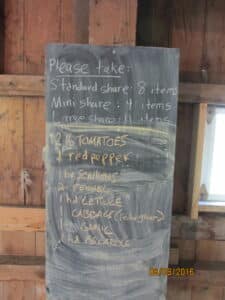 Please take:
Standard share: 8 items
Mini share: 4 items
Large share: items
TOMATOES
red pepper
SCALLIONS
2 FENNEL
1 hd LETTUCE
1 CABBAGE
GARLIC
hd ESCAROLE
2016